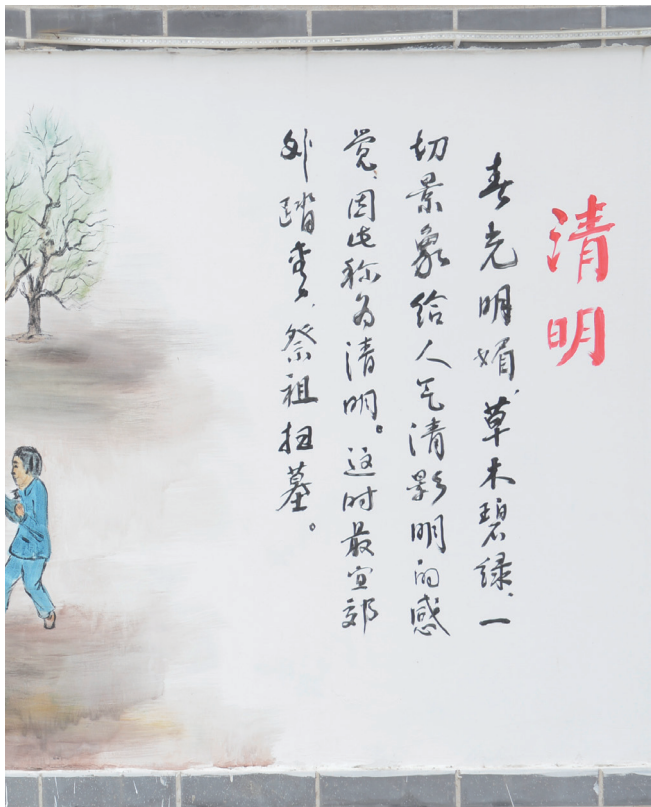 清明
春光明媚、草木碧绿、一
切景象给人气清影明的感
觉、因此称为清明。这时最宜郊
外踏青、祭祖扫墓。